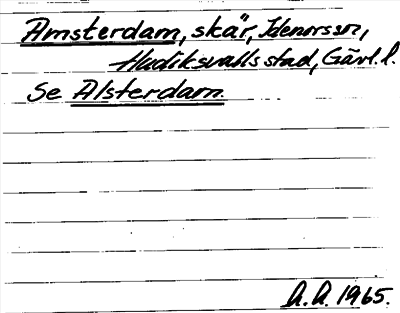 Amsterdam, skär, Idenorssn,
Hudiksvalls stad, Gävl. l.
Se Alsterdam.
A. A. 1965.